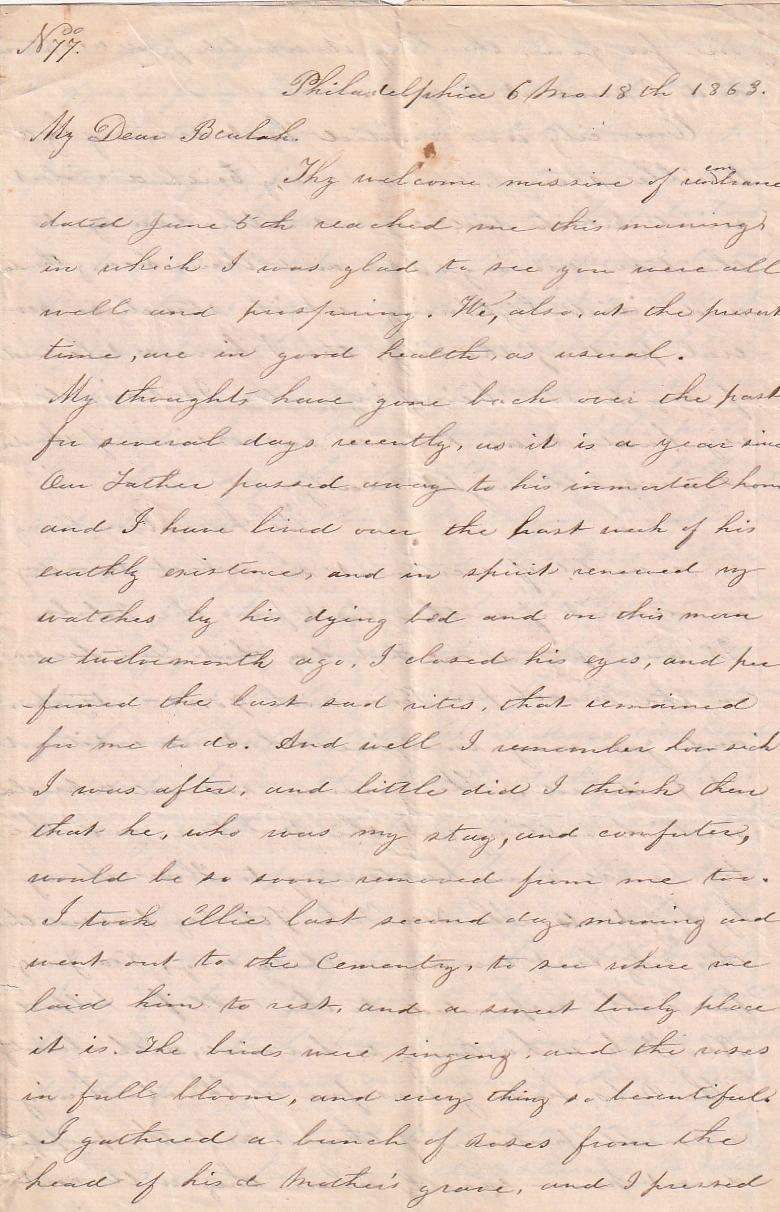 No 77.
Philadelphia 6 Mo 18th 1863.
My Dear Beulah.
Thy welcome missive of
dated June 5th reached me this morning
in which I was glad to see you were all
well and prospering. We, also, at the present
time, are in good health, as usual.
My thoughts have gone back over the past
for several days recently, as it is a year sinc
Our Father passed away to his immortal hom
and I have lived over the last week of his
earthly existence, and in spirit renewed my
watches by his dying bed and on this morn
a twelvemonth ago, I closed his eyes, and per
formed the last sad rites, that remained
for me to do. And well I remember how sick
I was after, and little did I think then
that he, who was my stay, and comforter,
would be so soon removed from me too.
I took Illie last second day morning and
went out to the Cementry, to see where we
laid him to rest, and a sweet lovely place
it is. The birds were singing, and the roses
in full bloom, and every thing so beautiful.
I gathered a bunch of roses from the
head of his Mother's grave, and I pressed